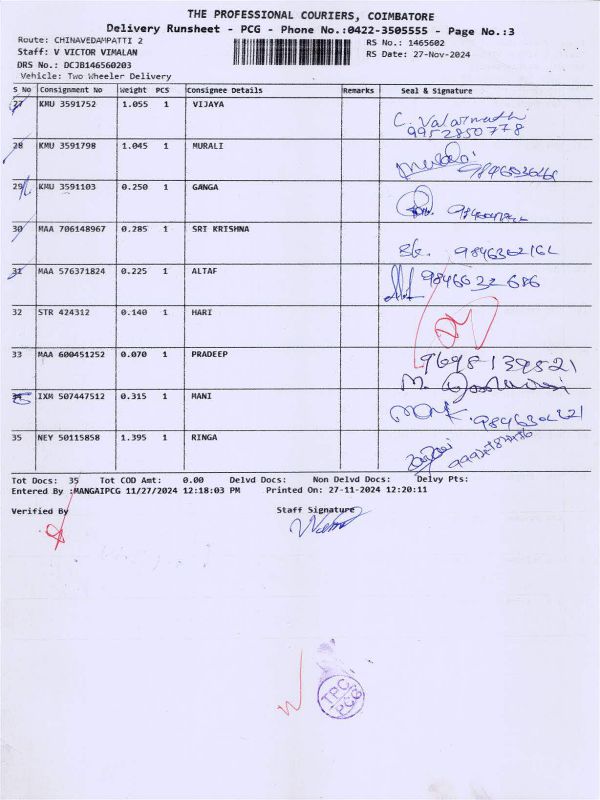 THE PROFESSIONAL COURIERS, COIMBATORE
Delivery Runsheet - PCG - Phone No.:0422-3505555 - Page No.:3
Route: CHINAVEDAMPATTI 2 RS No.: 1465602
Staff: V VICTOR VIMALAN RS Date: 27-Nov-2024
DRS No.: DCJB146560203
Vehicle: Two Wheeler Delivery
S No Consignment No Weight PCS Consignee Details Remarks Seal & Signature
27 KMU 3591752 1.055 1 VIJAYA
C. Valarmathi
9952850778
28 KMU 3591798 1.045 1 MURALI
Murali
29 KMU 3591103 0.250 1 GANGA
30 MAA 706148967 0.285 1 SRI KRISHNA
31 MAA 576371824 0.225 1 ALTAF
32 STR 424312 0.140 1 HARI
33 MAA 600451252 0.070 1 PRADEEP
9698139521
34 IXM 507447512 0.315 1 MANI
35 NEY 50115858 1.395 1 RINGA
Tot Docs: 35 Tot COD Amt: 0.00 Delvd Docs: Non Delvd Docs: Delvy Pts:
Entered By :MANGAIPCG 11/27/2024 12:18:03 PM Printed On: 27-11-2024 12:20:11
Verified By Staff Signature
TPC
PCG